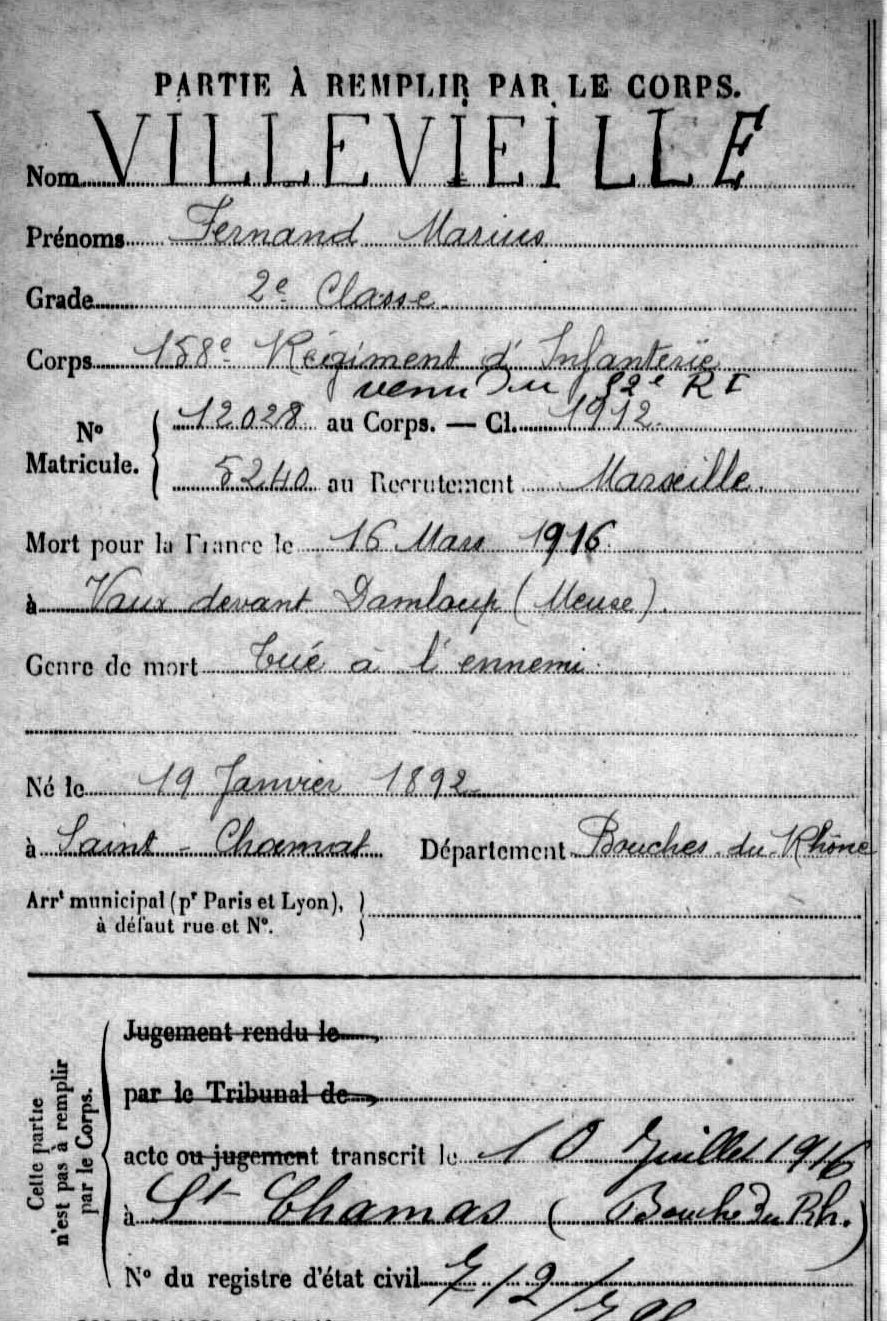 PARTIE À REMPLIR PAR LE CORPS.
Nom VILLEVIEILLE
Prénoms Fernand Marius
Grade 2e Classe
Corps 158e Régiment d'Infanterie
venu du 52e RI
N° Matricule. 12028 au Corps. — Cl. 1912
5240 au Recrutement Marseille.
Mort pour la France le 16 Mars 1916
à Vaux devant Damloup (Meuse).
Genre de mort tué à l'ennemi
Né le 19 Janvier 1892
à Saint-Chamat Département Bouches-du-Rhône
Arrt municipal (pr Paris et Lyon),
à défaut rue et N°.
Cette partie n'est pas à remplir par le Corps.
Jugement rendu le
par le Tribunal de
acte ou jugement transcrit le 10 Juillet 1916
à St Chamas (Bouche du Rh.)
N° du registre d'état civil